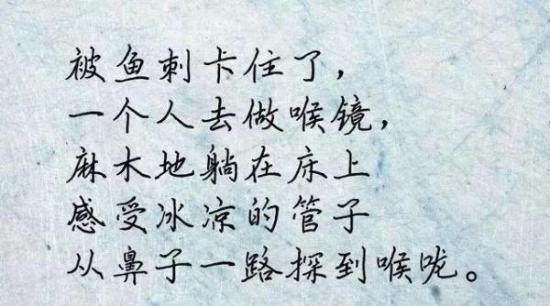 被鱼刺卡住了，
一个人去做喉镜，
麻木地躺在床上
感受冰凉的管子
从鼻子一路探到喉咙。